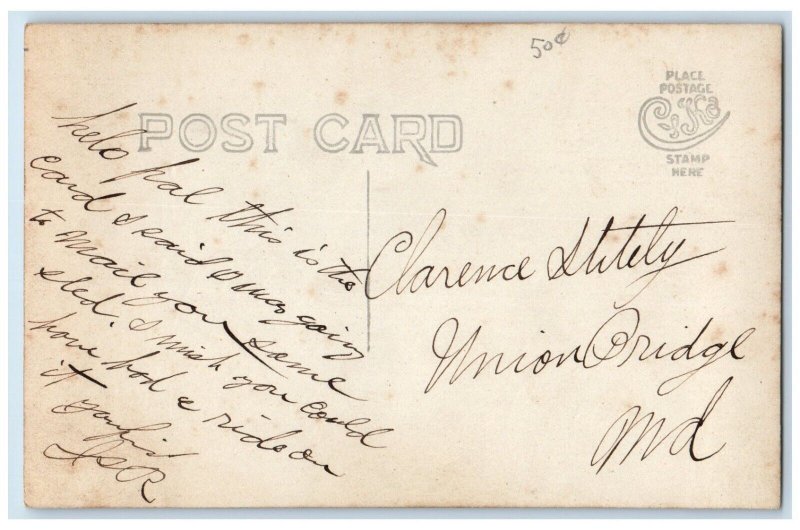 50¢
PLACE
POSTAGE
CyKo
STAMP
HERE
POST CARD
helo pal this is the
card I said I was going
to mail you some
sled. I wish you could
have had a ride on
it
Clarence Stitely
Union Bridge
Md